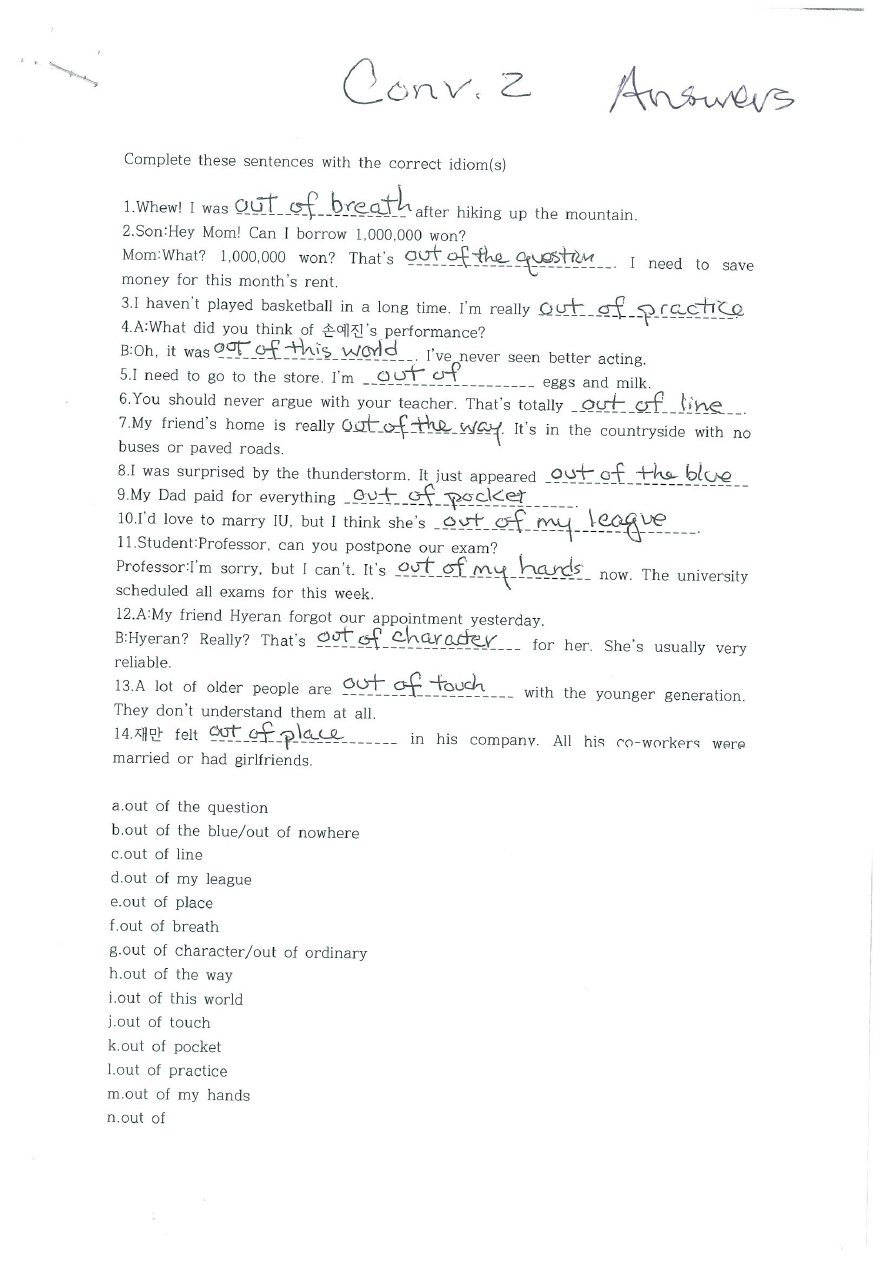 Conv. 2 Answers
Complete these sentences with the correct idiom(s)
1.Whew! I was out of breath after hiking up the mountain.
2.Son:Hey Mom! Can I borrow 1,000,000 won?
Mom:What? 1,000,000 won? That's out of the question. I need to save
money for this month's rent.
3.I haven't played basketball in a long time. I'm really out of practice
4.A:What did you think of 손예진's performance?
B:Oh, it was out of this world. I've never seen better acting.
5.I need to go to the store. I'm out of eggs and milk.
6.You should never argue with your teacher. That's totally out of line.
7.My friend's home is really out of the way. It's in the countryside with no
buses or paved roads.
8.I was surprised by the thunderstorm. It just appeared out of the blue
9.My Dad paid for everything out of pocket.
10.I'd love to marry IU, but I think she's out of my league.
11.Student:Professor, can you postpone our exam?
Professor:I'm sorry, but I can't. It's out of my hands now. The university
scheduled all exams for this week.
12.A:My friend Hyeran forgot our appointment yesterday.
B:Hyeran? Really? That's out of character for her. She's usually very
reliable.
13.A lot of older people are out of touch with the younger generation.
They don't understand them at all.
14.재만 felt out of place in his company. All his co-workers were
married or had girlfriends.
a.out of the question
b.out of the blue/out of nowhere
c.out of line
d.out of my league
e.out of place
f.out of breath
g.out of character/out of ordinary
h.out of the way
i.out of this world
j.out of touch
k.out of pocket
l.out of practice
m.out of my hands
n.out of